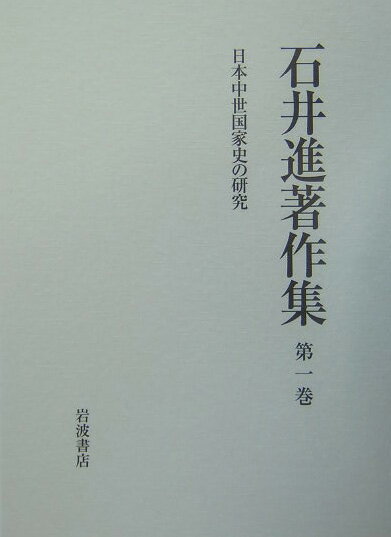 石井進著作集 第一巻
日本中世国家史の研究
岩波書店